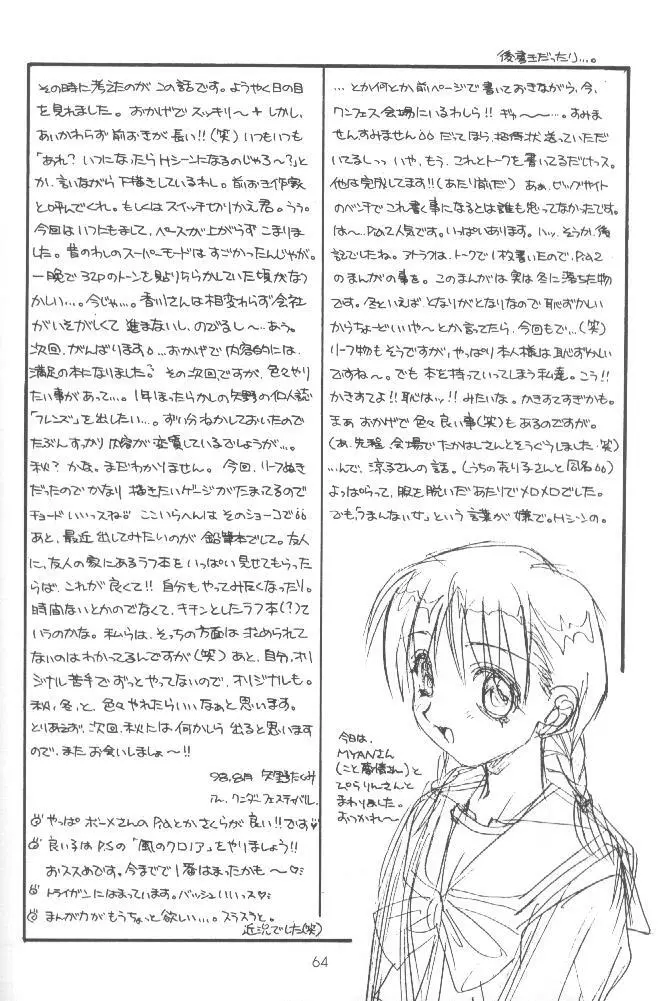 後書きだったり…。
…とか何とか、前ページで書いておきながら、今、
ワンフェス会場にいるわしら!! ギャ〜〜…。すみま
せんすみません だってほう、招待状送っていただ
いてるしっっ いや、もう、これとトークを書いてるだけっス。
他は完成してます!!(あたり前だ) あぁ、ビックサイト
のベンチでこれ書く事になるとは誰も思ってなかったです。
は〜、P.a2人気です。いっぱいあります。ハッ、そうか、後
記でしたね。アトラフは、トークで1枚書いたので、P.a2
のまんがの事を。このまんがは実は冬に落ちた物
です。冬といえば、となりがとなりなので恥ずかしい
からちょーどいいや〜とか言ってたら、今回もで…(笑)
リーフ物もそうですが、やっぱり本人様は恥ずかしい
ですね〜。でも本を持っていってしまう私達。こう!!
かきすてよ!! 恥はッ!! みたいな。かきすてすぎかも。
まぁ おかげで色々良い事(笑)もあるのですが。
(あ、先程、会場でたかはしさんとそうぐうしました・笑)
…んで、涼子さんの話。(うちの売り子さんと同名)
よっぱらって、服を脱いだあたりでメロメロでした。
でも「つまんない女」という言葉が嫌で。Hシーンの。
その時に考えたのがこの話です。ようやく日の目
を見れました。おかげでスッキリ〜+ しかし、
あいかわらず前おきが長い!!(笑) いつもいつも
「あれ? いつになったらHシーンになるのじゃろ〜?」と
か、言いながら下描きしているわし。前おき作家
と呼んでくれ。もしくはスイッチきりかえ君。うう。
今回はいつにもまして、ペースが上がらずこまりま
した。昔のわしのスーパーモードはすごかったんじゃが。
一晩で32Pのトーンを貼りちらかしていた頃がなつ
かしい…。今じゃ…。香川さんは相変わらず会社
がいそがしくて進まないし、のびるし〜。あぅ。
次回、がんばります。…おかげで内容的には、
満足の本になりました。 その次回ですが、色々やり
たい事があって…。1年ほったらかしの矢野の個人誌
「フレンズ」を出したい…。ずい分ねかしておいたので
たぶんすっかり内容が変質しているでしょうが…。
秋? かな。まだわかりません。今回、リーフぬき
だったのでかなり描きたいゲージがたまってるので
チョードいいっスね ここいらへんは そのショーコで
あと、最近出してみたいのが鉛筆本でして。友人
に、友人の家にあるラフ本をいっぱい見せてもらった
らば、これが良くて!! 自分もやってみたくなったり。
時間ないとかのでなくて、キチンとしたラフ本(?)て
いうのかな。私らは、そっちの方面は求められて
ないのはわかってるんですが(笑) あと、自分、オリ
ジナル苦手でずっとやってないので、オリジナルも。
秋、冬、と、色々やれたらいいなぁと思います。
とりあえず、次回、秋には何かしら出ると思います
ので、またお会いしましょ〜!!
98.8月 矢野たくみ
in. ワンダーフェスティバル.
やっぱ ボーメさんのP.aとかさくらが良い!!です
良いるはP.Sの「風のクロノア」をやりましょう!!
おススめです。今までで1番はまったかも〜
トライガンにはまっています。バッシュいいっス
まんが力がもうちょっと欲しい…。スラスラと。
近況でした(笑)
今日は、
MYANさん
(こと夢情さん)と
ぴらりんさんと
まわりました。
おつかれ〜
64